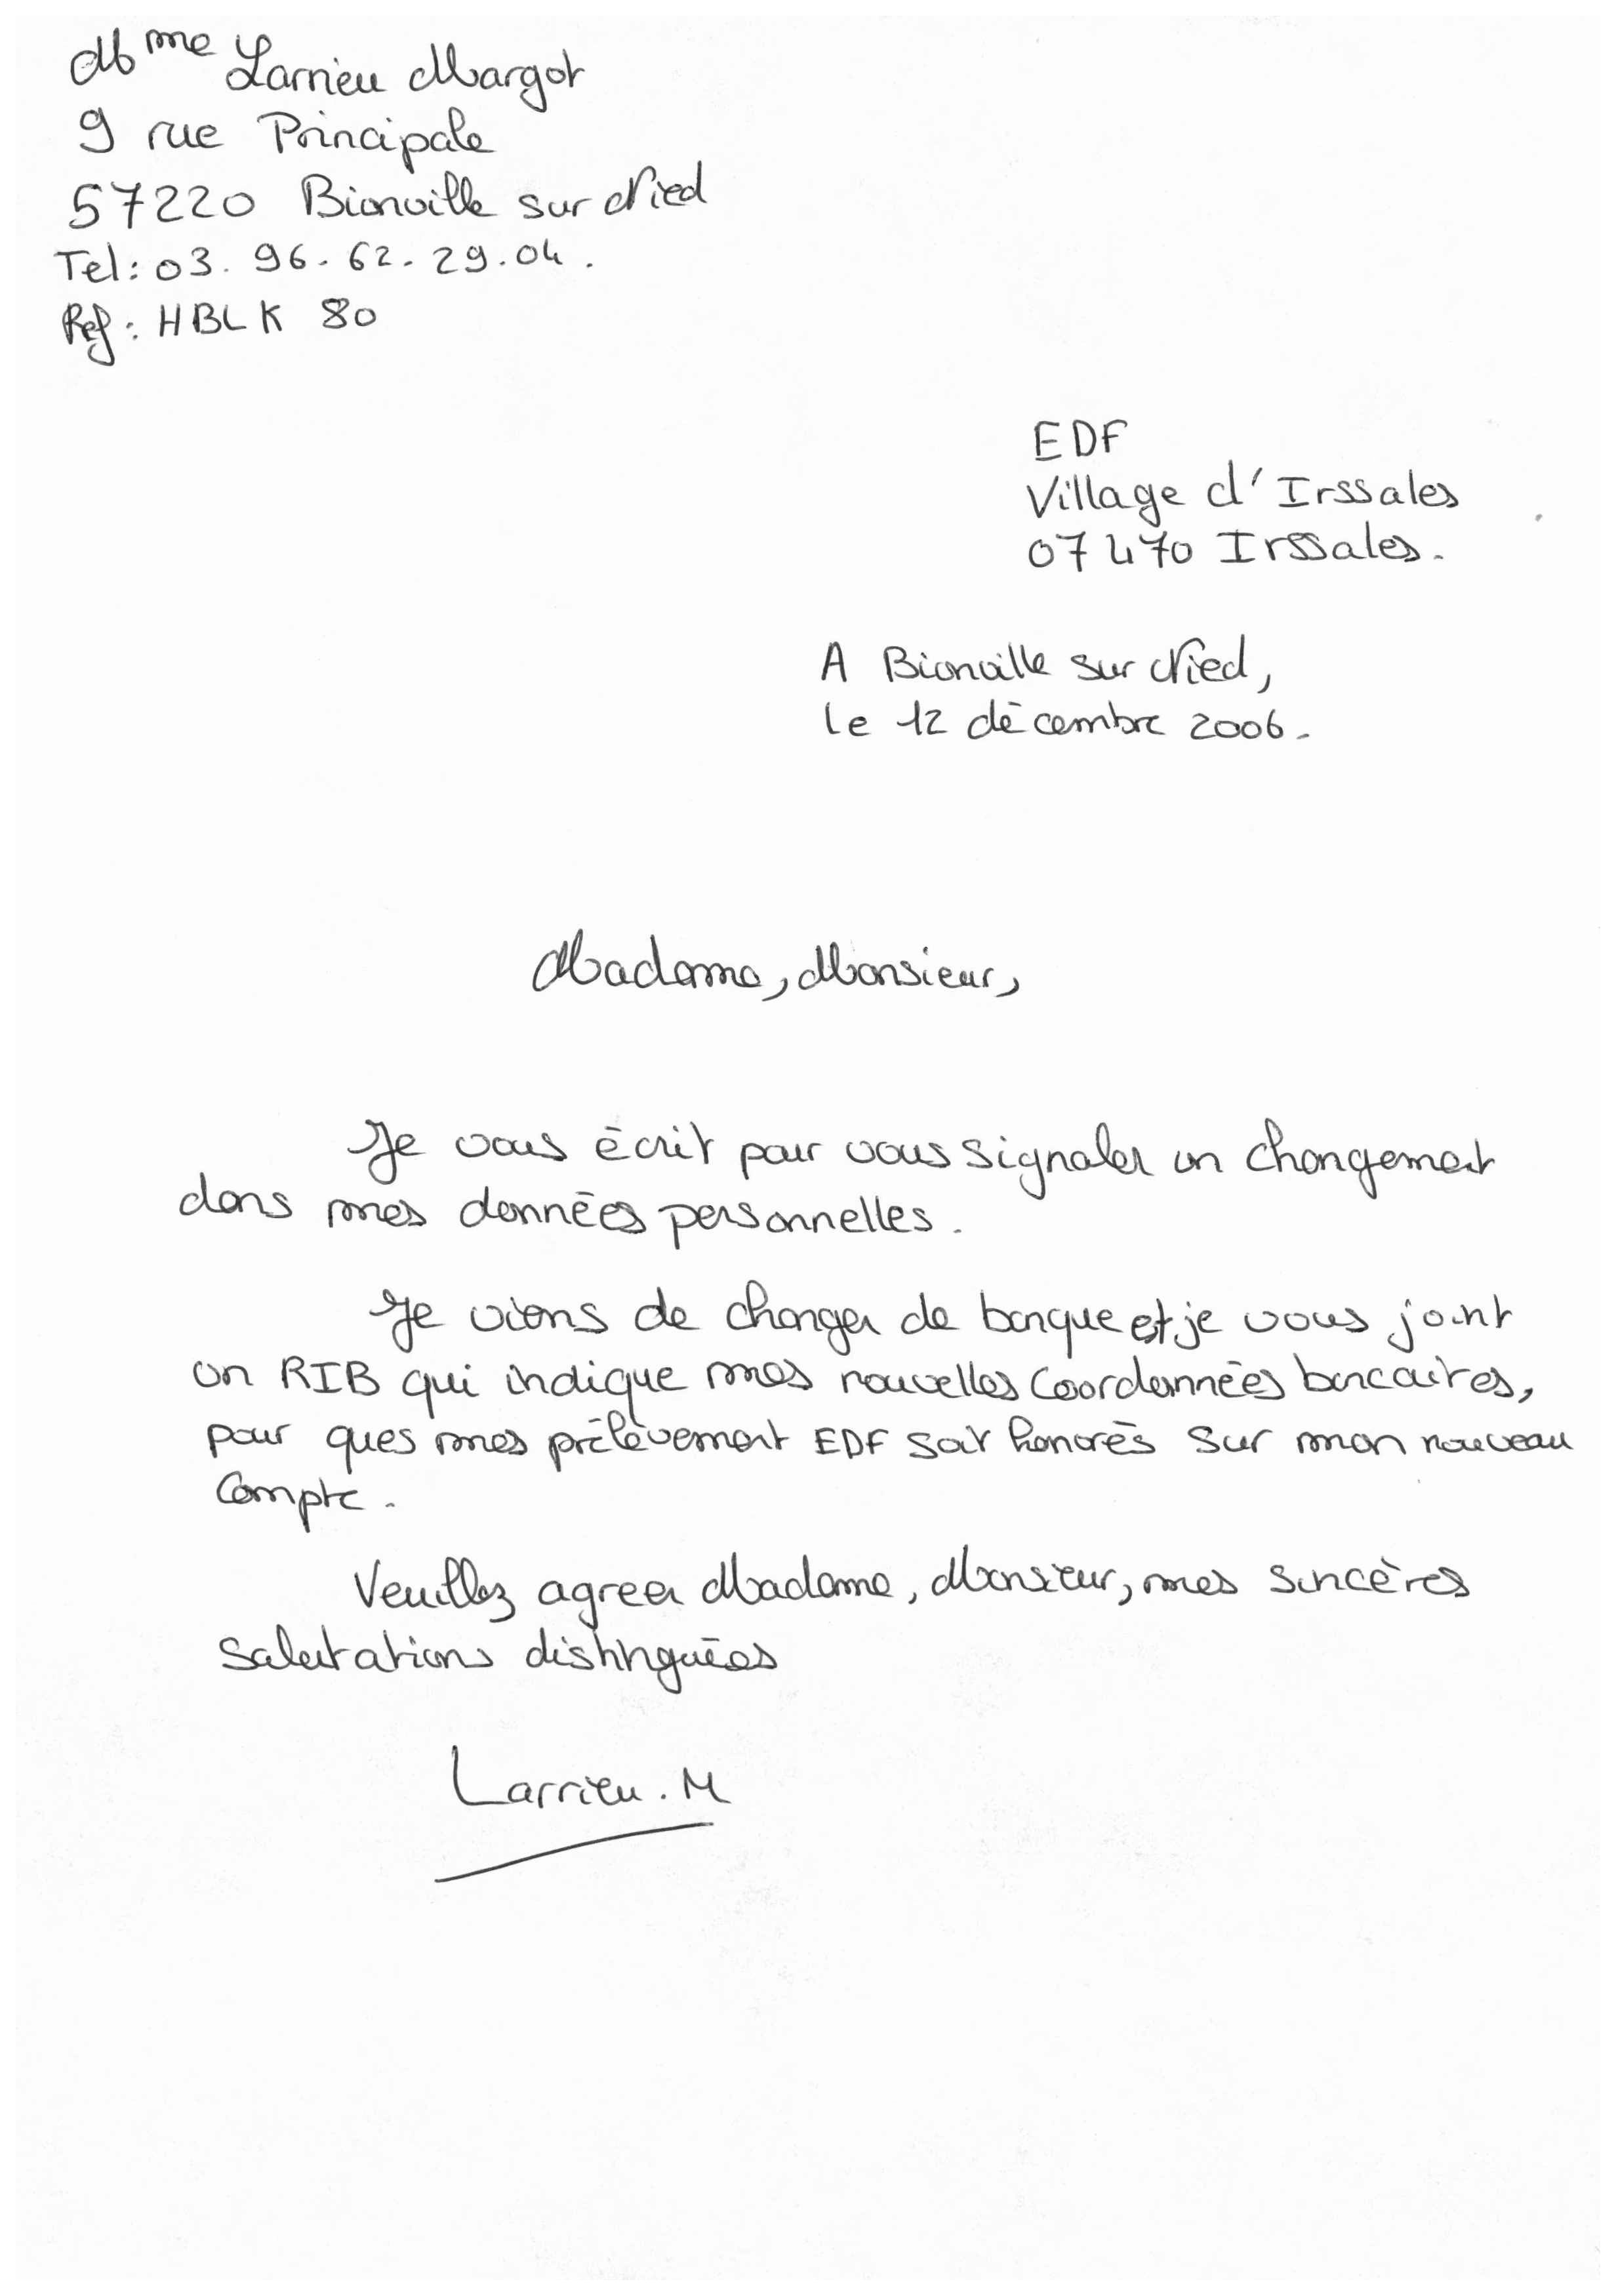 Mme Larrieu Margot
9 rue Principale
57220 Bionville sur Nied
Tel: 03. 96. 62. 29. 04.
Ref: HBLK 80
EDF
Village d'Irssales
07470 Irssales.
A Bionville sur Nied,
le 12 décembre 2006.
Madame, Monsieur,
Je vous écrit pour vous signaler un changement
dans mes données personnelles.
Je viens de changer de banque et je vous joint
un RIB qui indique mes nouvelles coordonnées bancaires,
pour ques mes prélèvement EDF soit honorés sur mon nouveau
compte.
Veuillez agreer Madame, Monsieur, mes sincères
salutations distinguées
Larrieu. M